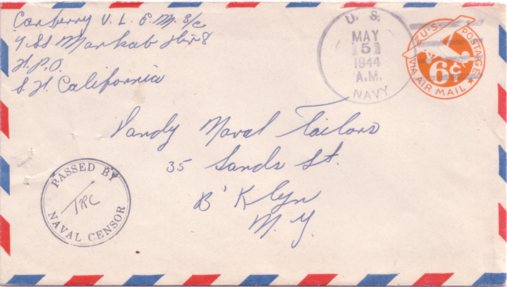 Carberry V. L. E.M. 3/c
U.S.S Markab Div 8
F.P.O.
S.F. California
U. S.
MAY
5
1944
A.M.
NAVY
U.S. POSTAGE
6¢
VIA AIR MAIL
Vandy Naval Tailors
35 Sands St.
B'klyn
N.Y.
PASSED BY
TRC
NAVAL CENSOR